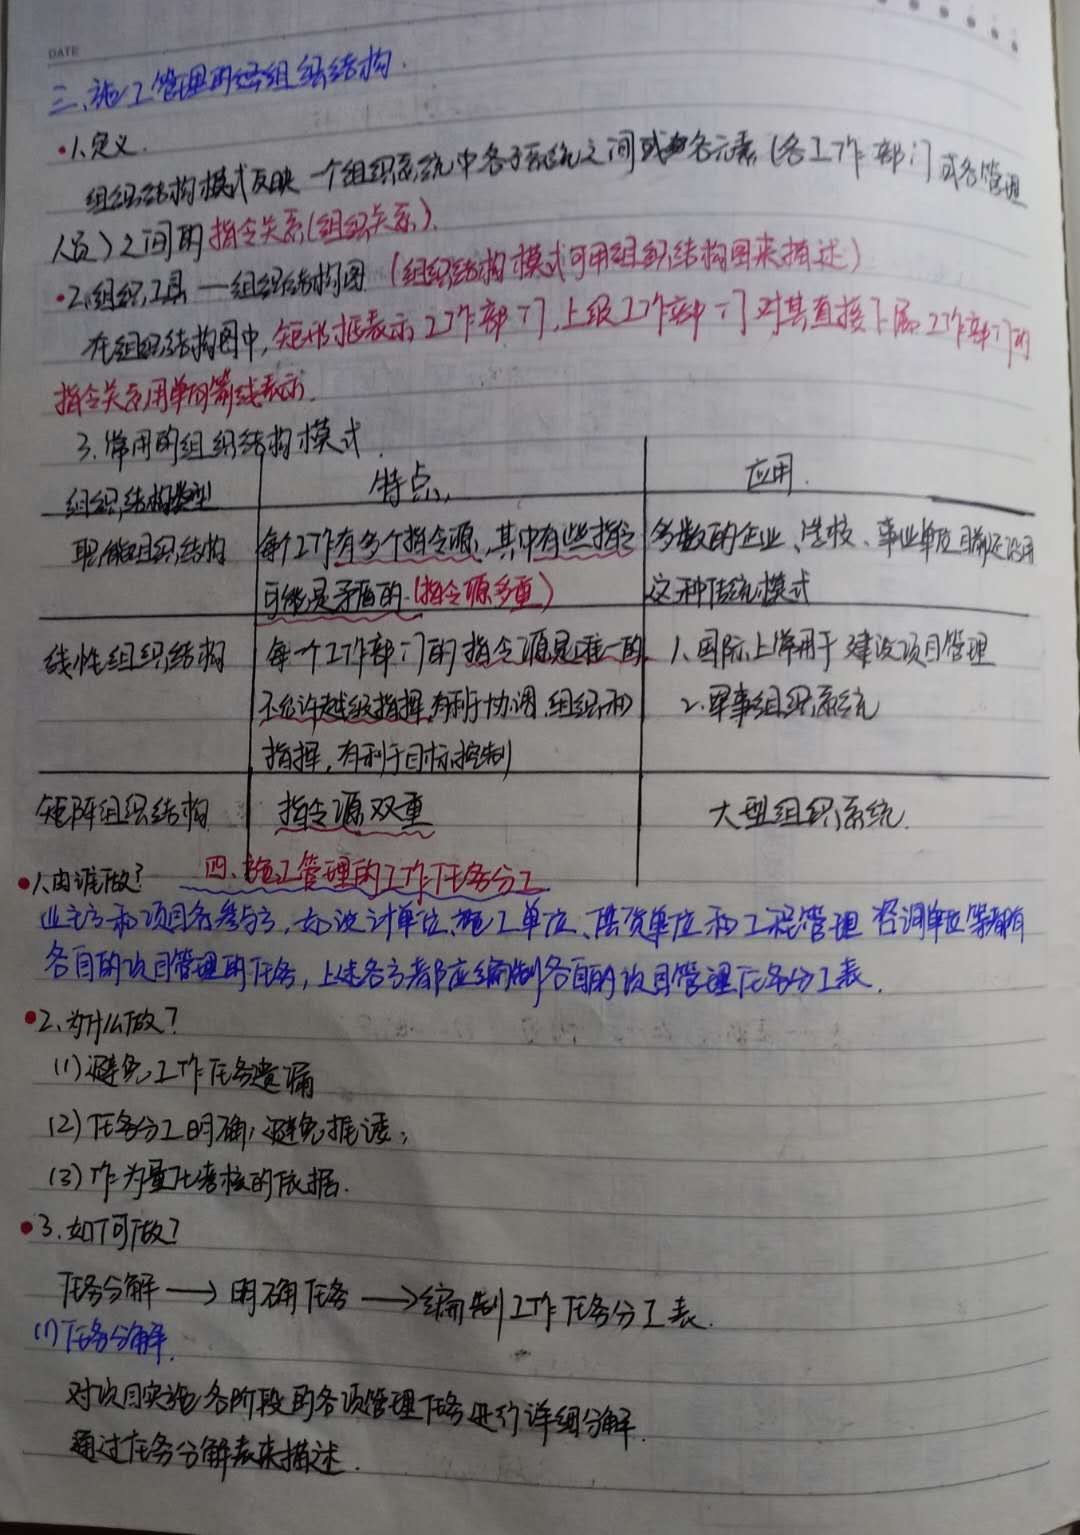 DATE
三、施工管理的组织结构.
1、定义.
组织结构模式反映一个组织系统中各子系统之间或各元素(各工作部门或各管理
人员)之间的指令关系(组织关系).
2.组织工具—组织结构图 (组织结构模式可用组织结构图来描述)
在组织结构图中,矩形框表示工作部门,上级工作部门对其直接下属工作部门的
指令关系用单向箭线表示.
3.常用的组织结构模式.
组织结构类型 特点 应用.
职能组织结构 每个工作有多个指令源,其中有些指令 多数的企业、学校、事业单位目前还沿用
可能是矛盾的.(指令源多重) 这种传统模式
线性组织结构 每一个工作部门的指令源是唯一的, 1、国际上常用于建设项目管理
不允许越级指挥,有利于协调、组织和 2.军事组织系统
指挥,有利于目标控制
矩阵组织结构 指令源双重 大型组织系统.
四、施工管理的工作任务分工
1、由谁做?
业主方和项目各参与方,如设计单位、施工单位、供货单位和工程管理咨询单位等都有
各自的项目管理的任务,上述各方都应编制各自的项目管理任务分工表.
2、为什么做?
(1)避免工作任务遗漏
(2)任务分工明确,避免推诿;
(3)作为量化考核的依据.
3.如何做?
任务分解→明确任务→编制工作任务分工表.
(1)任务分解.
对项目实施各阶段的各项管理任务进行详细分解.
通过任务分解表来描述.